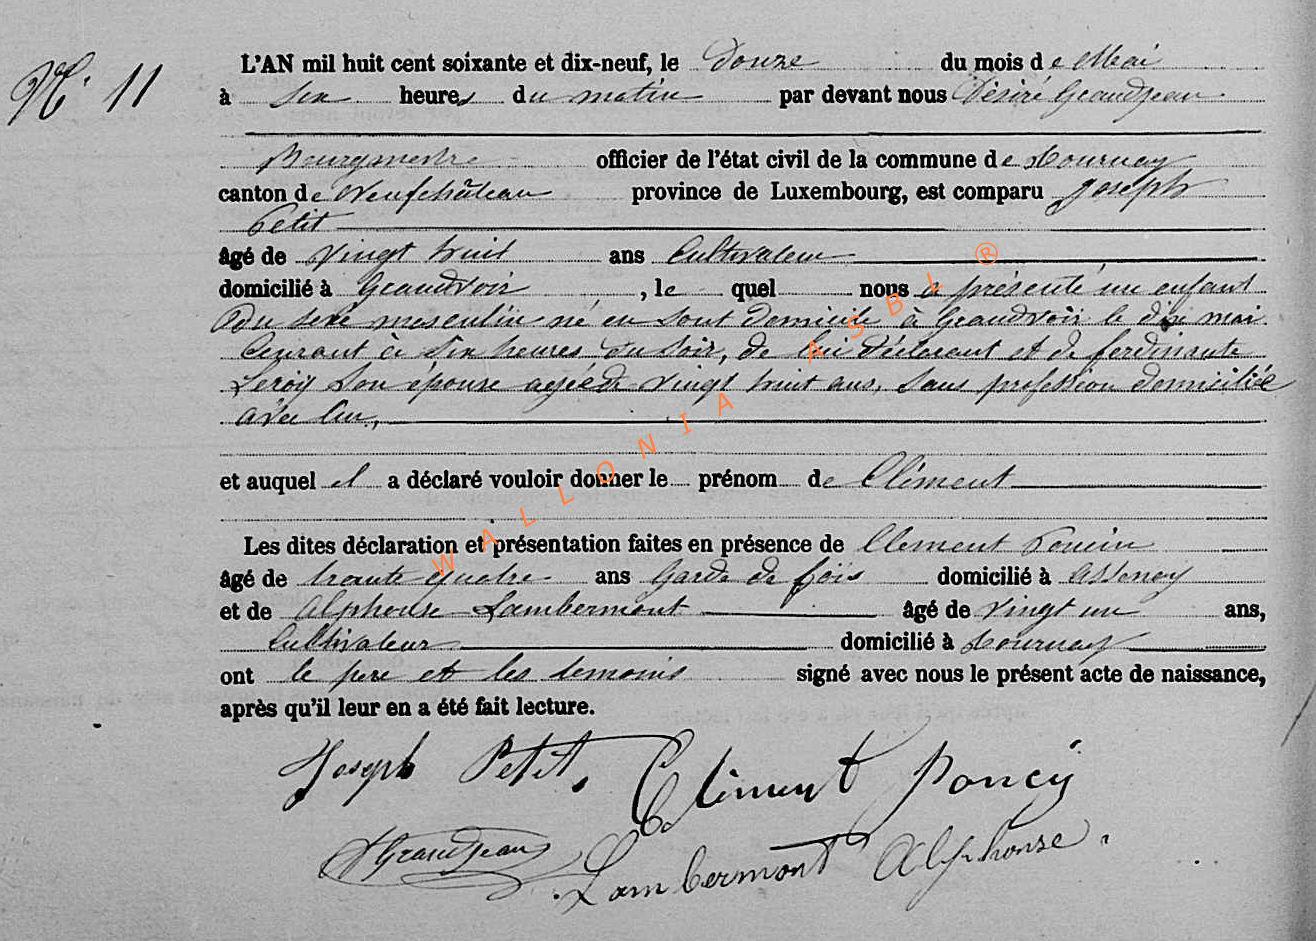 N° 11
L'AN mil huit cent soixante et dix-neuf, le Douze du mois de Mai
à six heures du matin par devant nous Désiré Grandjean
Bourgmestre officier de l'état civil de la commune de Tournay
canton de Neufchâteau province de Luxembourg, est comparu Joseph
Petit
âgé de vingt huit ans Cultivateur
domicilié à Grandvoir, le quel nous a présenté un enfant
Du sexe masculin né en son domicile à Grandvoir le dix mai
Courant à six heures du soir, de lui déclarant et de ferdinante
Leroÿ Son épouse agée de vingt huit ans, sans profession domiciliée
avec lui,
et auquel il a déclaré vouloir donner le prénom de Clément
Les dites déclaration et présentation faites en présence de Clément
âgé de trente quatre ans Garde de domicilié à Assenoy
et de Alphonse Lambermont âgé de vingt un ans,
Cultivateur domicilié à Tournay
ont le père et les temoins signé avec nous le présent acte de naissance,
après qu'il leur en a été fait lecture.
Joseph Petit, Clément Poncin
DGrandjean
Lambermont Alphonse.
WALLONIA ASBL ®